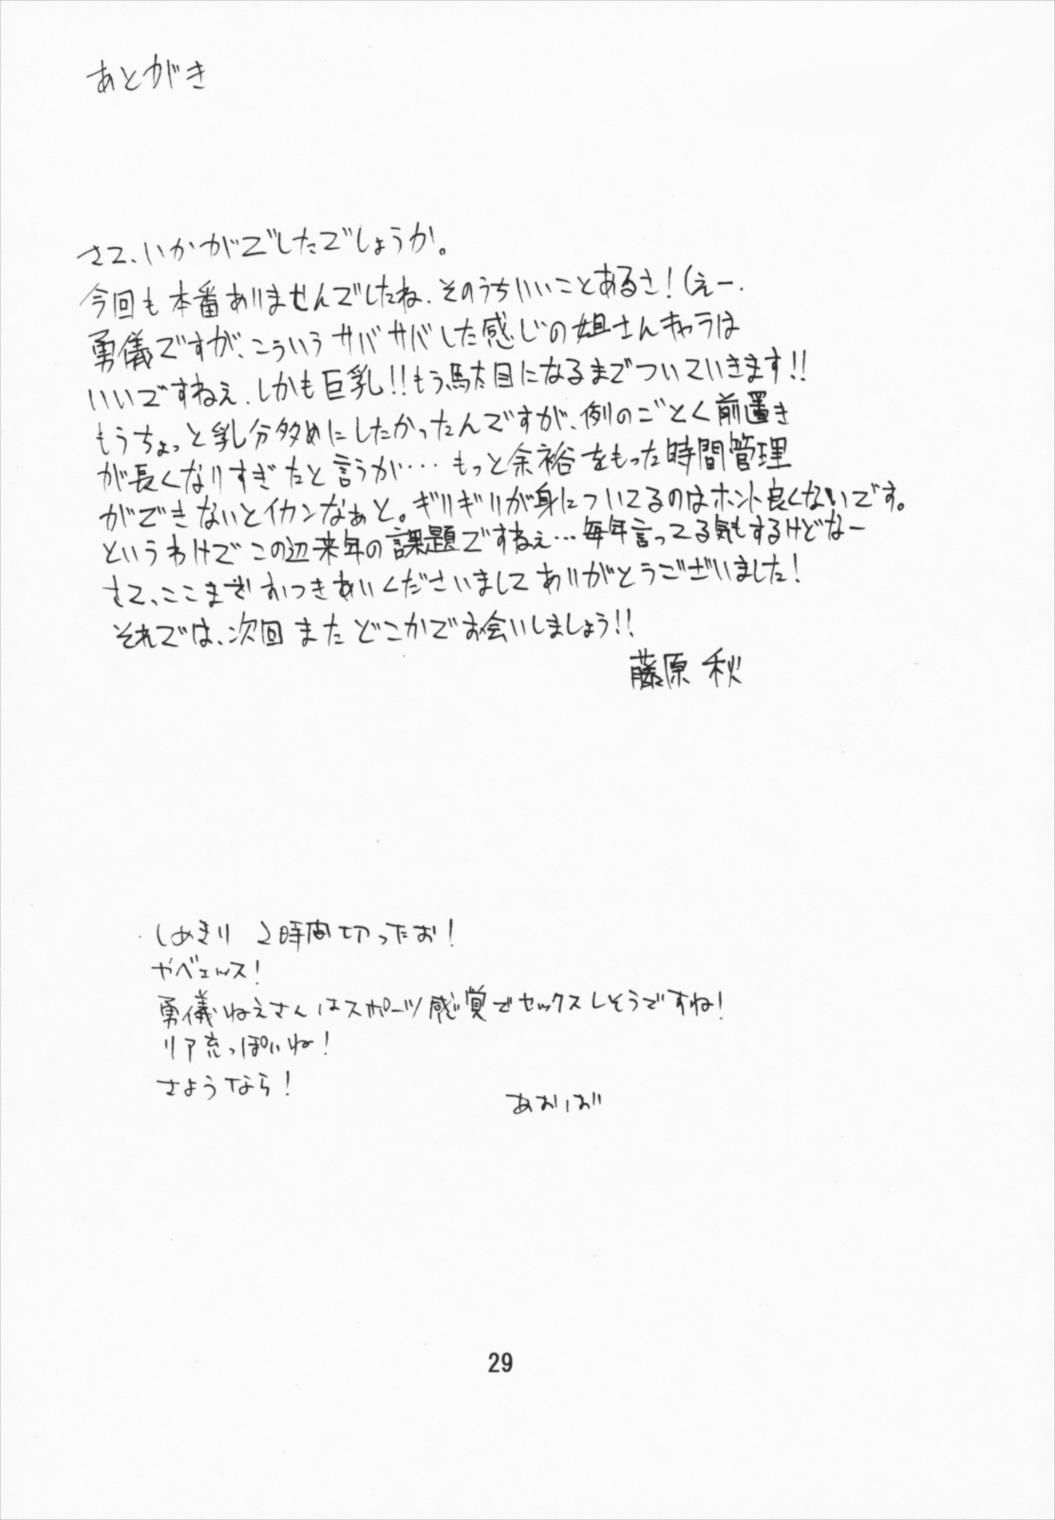 あとがき
さて、いかがでしたでしょうか。
今回も本番ありませんでしたね、そのうちいいことあるさ!(えー.
勇儀ですが、こういうサバサバした感じの姐さんキャラは
いいですねぇ.しかも巨乳!!もう、駄目になるまでついていきます!!
もうちょっと乳分多めにしたかったんですが、例のごとく前置き
が長くなりすぎたと言うか… もっと余裕をもった時間管理
ができないとイカンなぁと。ギリギリが身についてるのはホント良くないです。
というわけでこの辺来年の課題ですねぇ…毎年言ってる気もするけどなー
さて、ここまでおつきあいくださいましてありがとうございました!
それでは、次回またどこかでお会いしましょう!!
藤原 秋
しめきり 2時間切ったお!
やべェッス!
勇儀ねえさんはスポーツ感覚でセックスしそうですね!
リア充っぽいね!
さようなら!
あおば
29